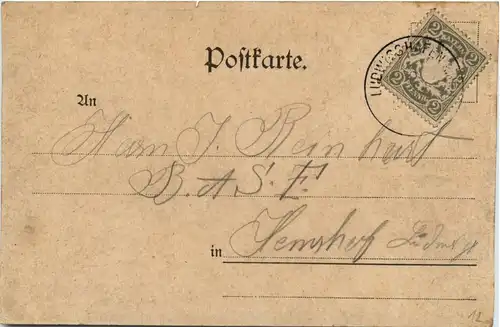 Postkarte.
LUDWIGSHAFEN
2 2 2 2
An
Herrn J. Reinhart
B.A.S.F.
in Hemshof Ludwigs
12